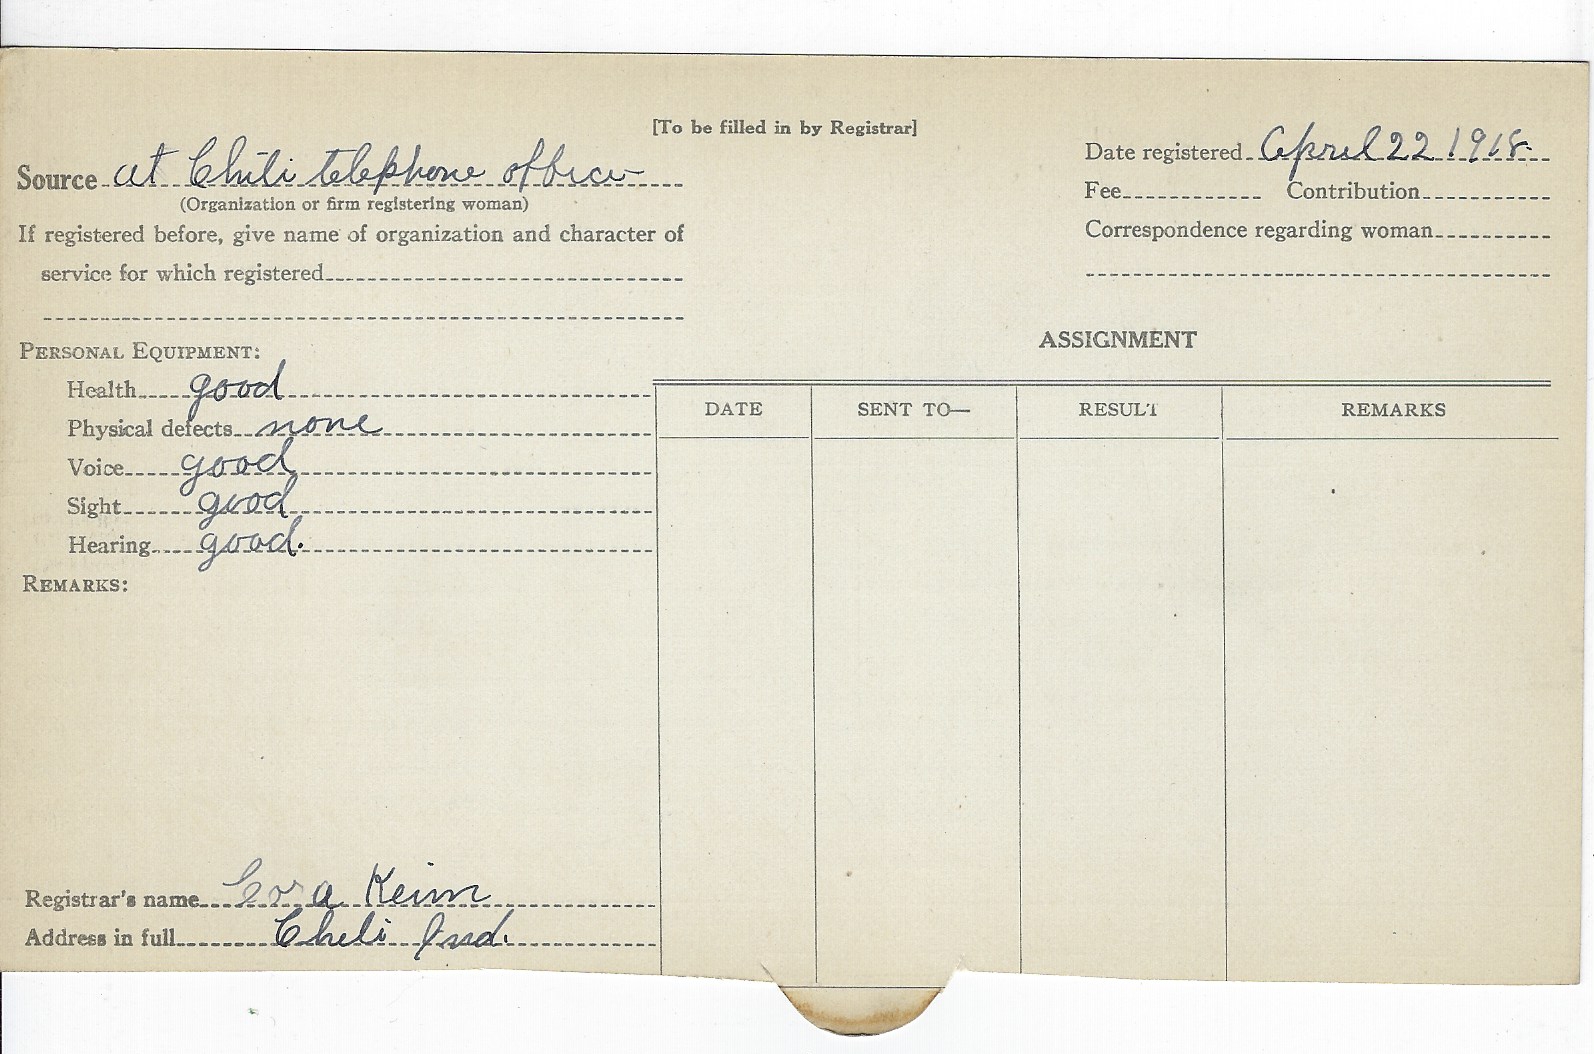 [To be filled in by Registrar]
Source at Chili telephone office
(Organization or firm registering woman)
If registered before, give name of organization and character of
service for which registered
Date registered April 22 1918.
Fee Contribution
Correspondence regarding woman
PERSONAL EQUIPMENT:
Health good
Physical defects none
Voice good
Sight good
Hearing good.
REMARKS:
ASSIGNMENT
DATE SENT TO— RESULT REMARKS
Registrar's name Cora Keim
Address in full Chili Ind.